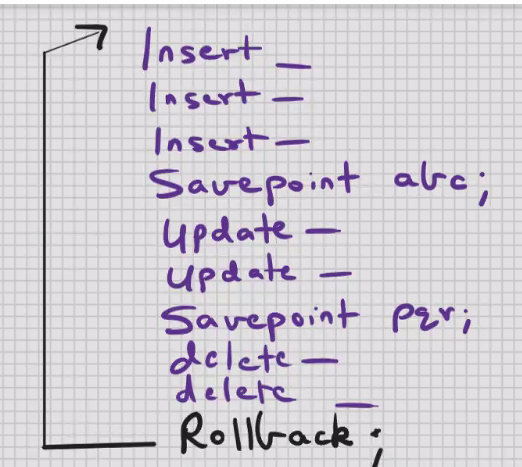 Insert _
Insert —
Insert —
Savepoint abc;
Update —
Update —
Savepoint pqr;
delete —
delete _
Rollback;